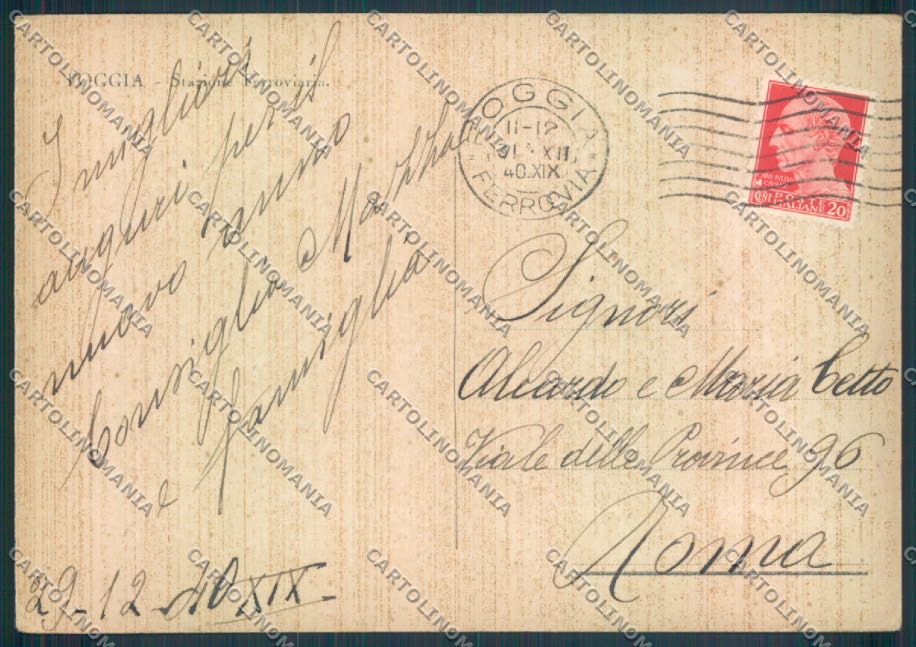 FOGGIA - Stazione Ferroviaria.
I migliori
auguri per il
nuovo anno
Consiglia
e famiglia
29-12-40 XIX
FOGGIA
11-12
31 XII
40.XIX
FERROVIA
POSTE
CENT. ITALIANE 20
Signori
Alcardo e Maria Cetto
Viale delle Province 96
Roma
CARTOLINOMANIA